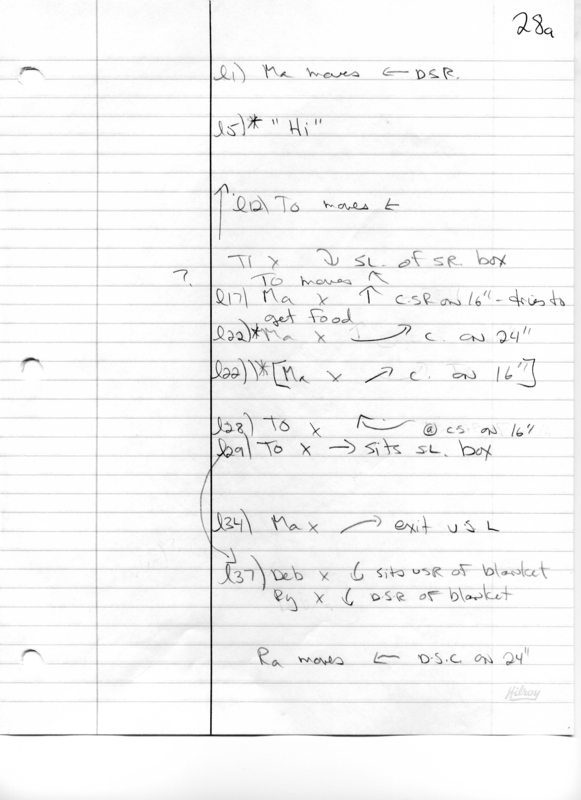 28a
l1) Ma moves ← DSR.
l5)* "Hi"
↑ l12) To moves ←
TI x ↓ SL. of SR. box
? To moves ↖
l17) Ma x ↑ C.SR on 16" - tries to
get food
l22)* Ma x ↗ C. on 24"
l22))* [Ma x ↗ C. on 16"]
l28) To x ↖ @ CS. on 16"
l29) To x → sits SL. box
l34) Ma x ↗ exit USL
l37) Deb x ↓ sits USR of blanket
Ry x ↓ DSR of blanket
Ra moves ← D.S.C on 24"
Hilroy